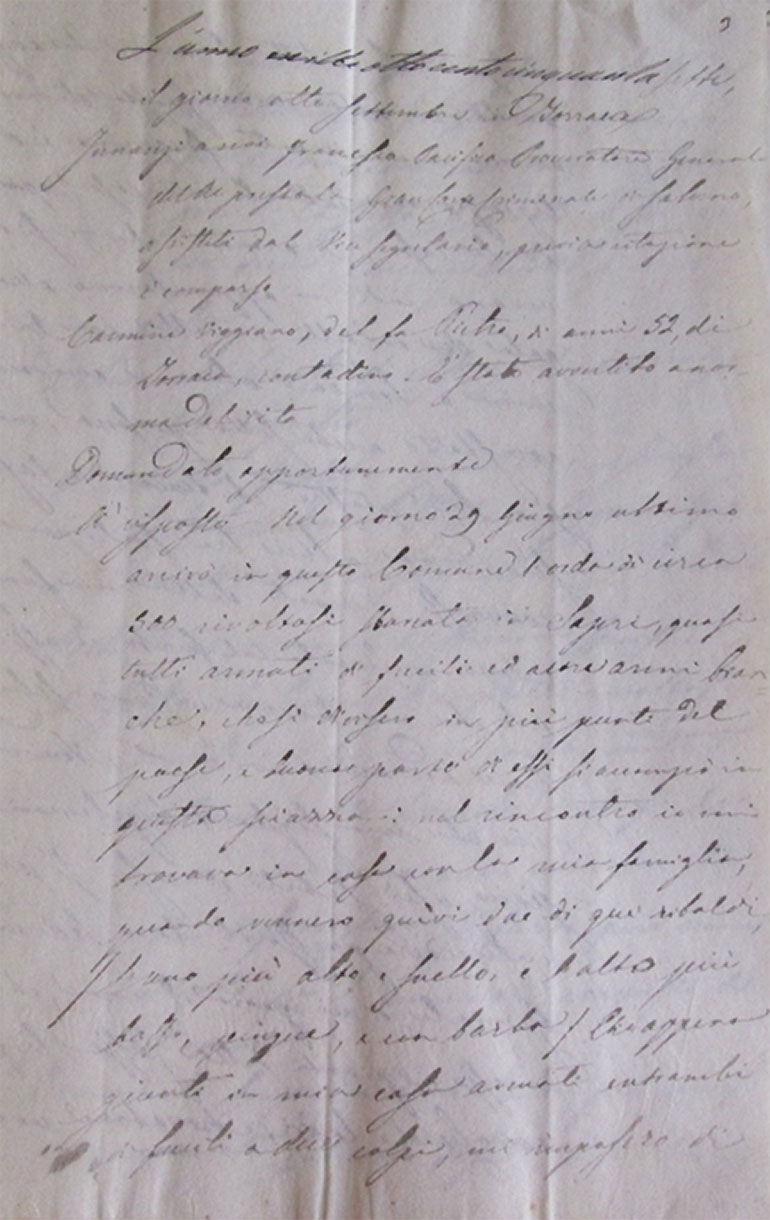 L'anno mille ottocentocinquantasette,
il giorno otto Settembre in Torraca
Innanzi a noi Francesco Pacifico Procuratore Generale
del Re presso la Gran Corte Criminale di Salerno,
assistiti dal Vice Segretario, previa citazione
è comparso
Carmine Viggiano, del fu Pietro, di anni 52, di
Torraca, contadino. È stato avvertito a nor-
ma del rito
Domandato opportunemente
À risposto Nel giorno 29 Giugno ultimo
arrivò in questo Comune l'orda di circa
300 rivoltosi sbarcata in Sapri, quasi
tutti armati di fucili ed altre armi bian=
che, che si divisero in più punti del
paese, e buona parte di essi si accampò in
questa piazza: nel rincontro io mi
trovava in casa con la mia famiglia,
quando vennero quivi due di quei ribaldi,
/ l'uno più alto e snello, e l'altro più
basso, pingue, e con barba / che appena
giunti in mia casa armati entrambi
di fucili a due colpi, mi imposero di